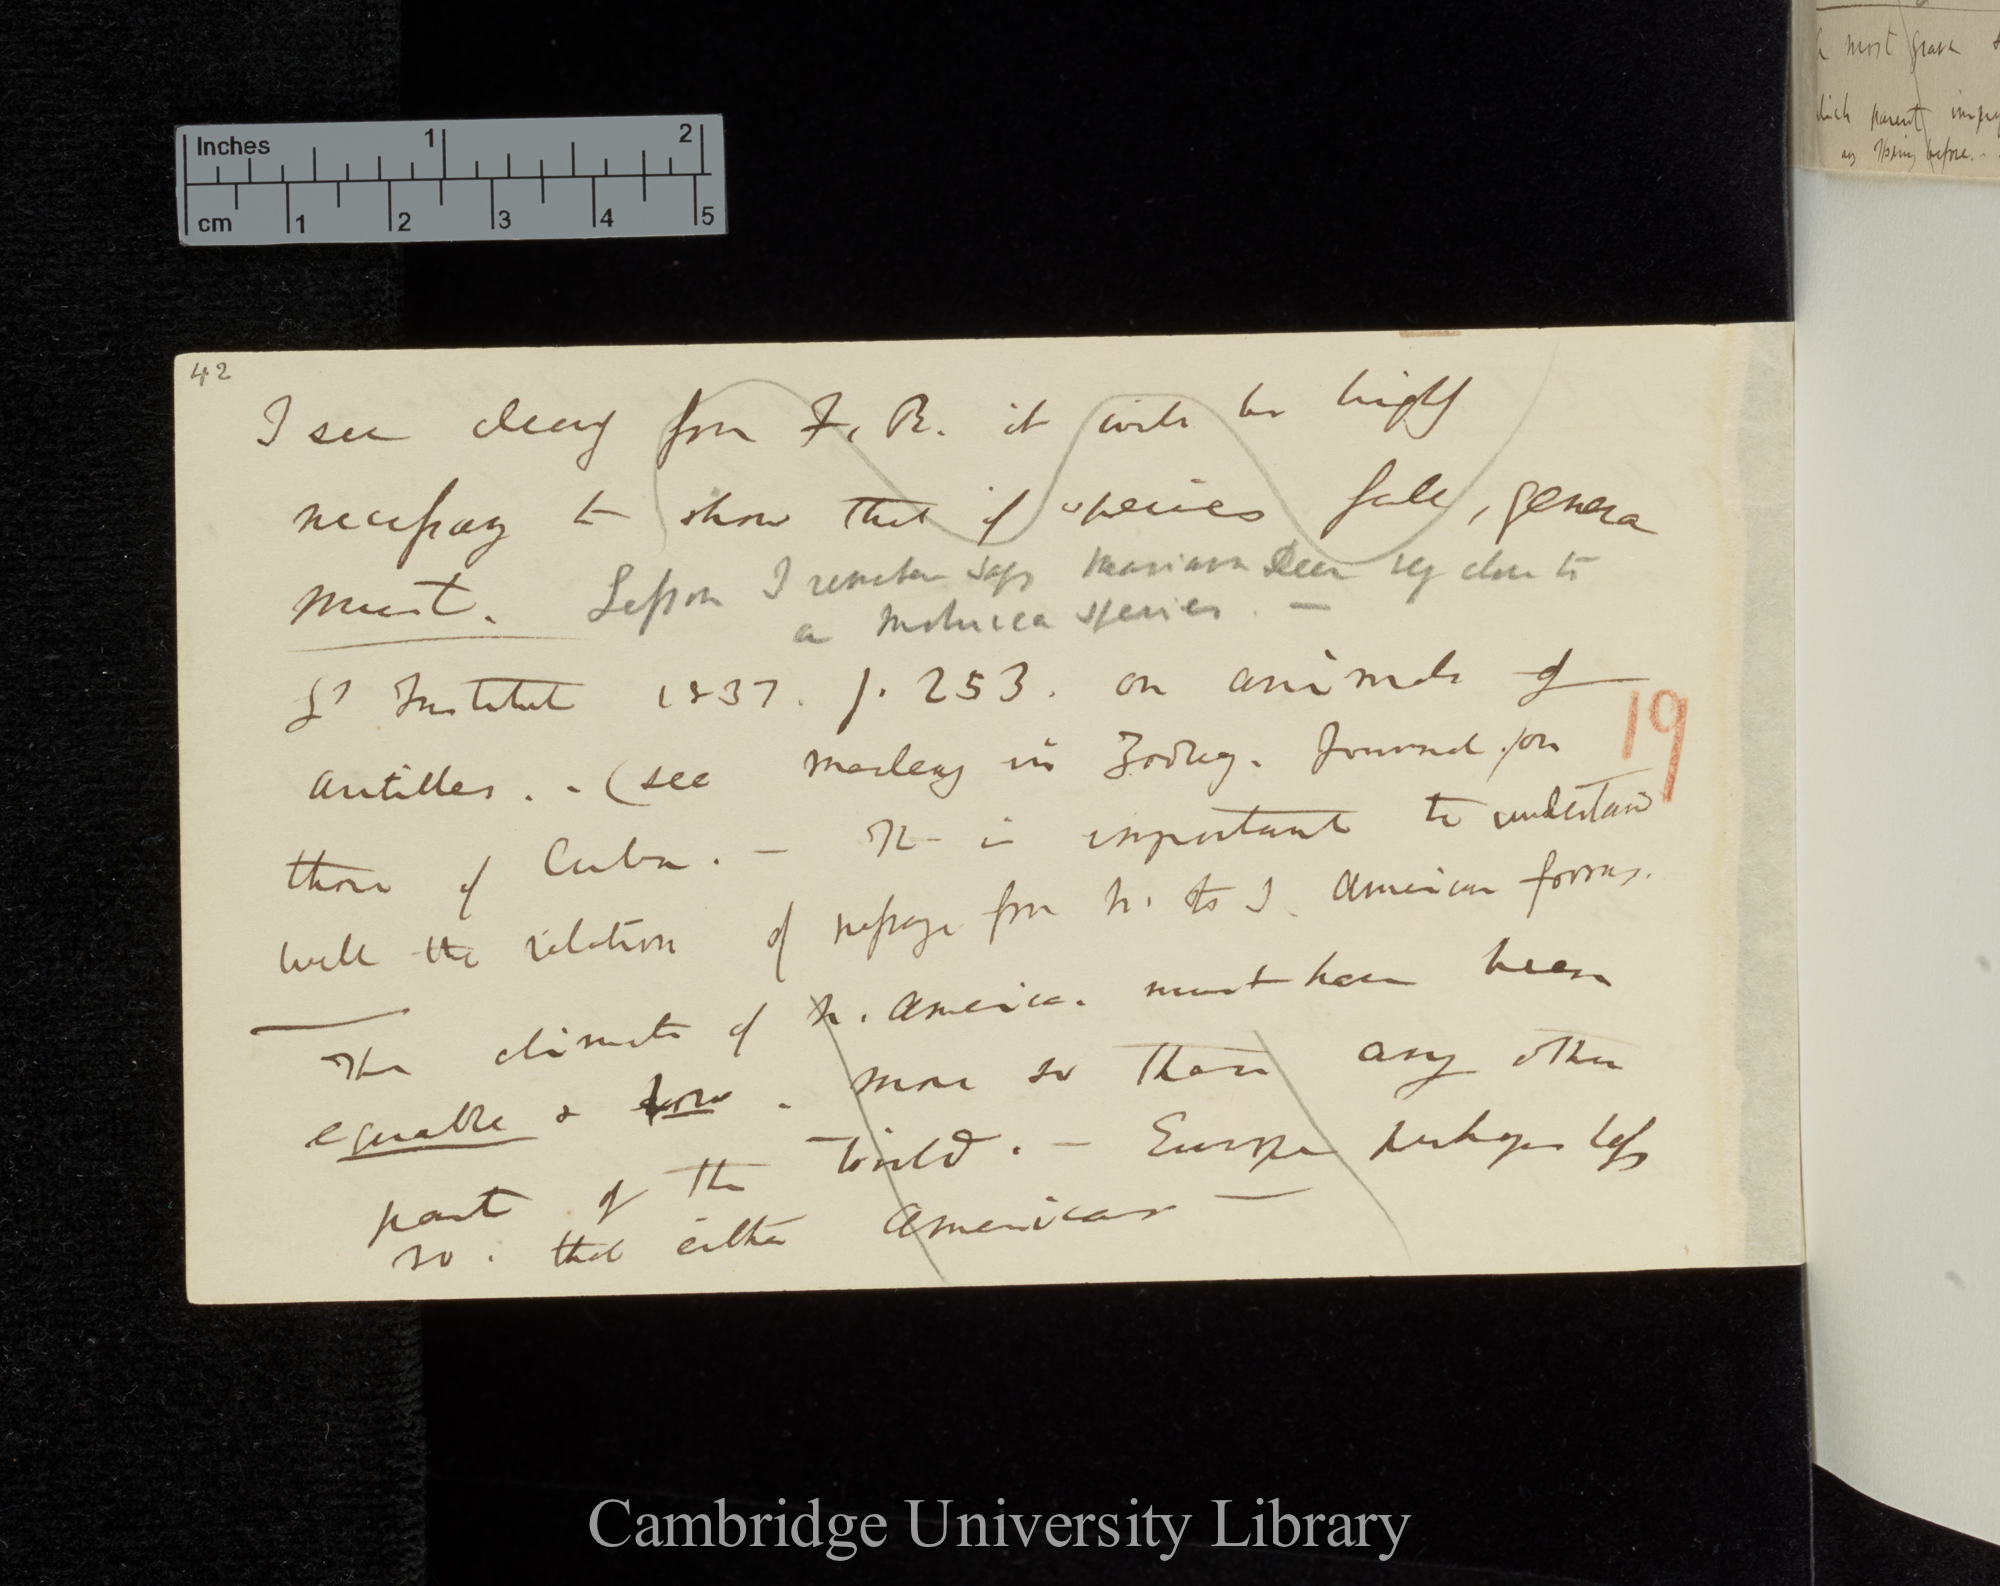 Inches 1 2
cm 1 2 3 4 5
a most grave
which parent impreg
as being before. -
42
I see clearly from F. R. it will be highly
necessary to show that if species fall, genera
must.
Lesson I remember says Mariana Deer very close to
a Molucca species. —
L' Institut 1837. p. 253. on animals of
Antilles. - (see Macleay in Zoolog. Journal on
19
those of Cuba. — It is important to understand
well the relation of passage from N. to S. American forms.
The climate of N. America. must have been
equable & low. more so than any other
part of the World. — Europe perhaps less
so. that either Americas —
Cambridge University Library